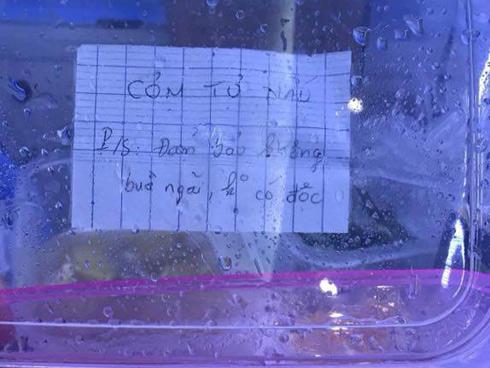 CƠM TỰ NẤU
P/s: Đảm bảo không
buà ngãi, k° có độc